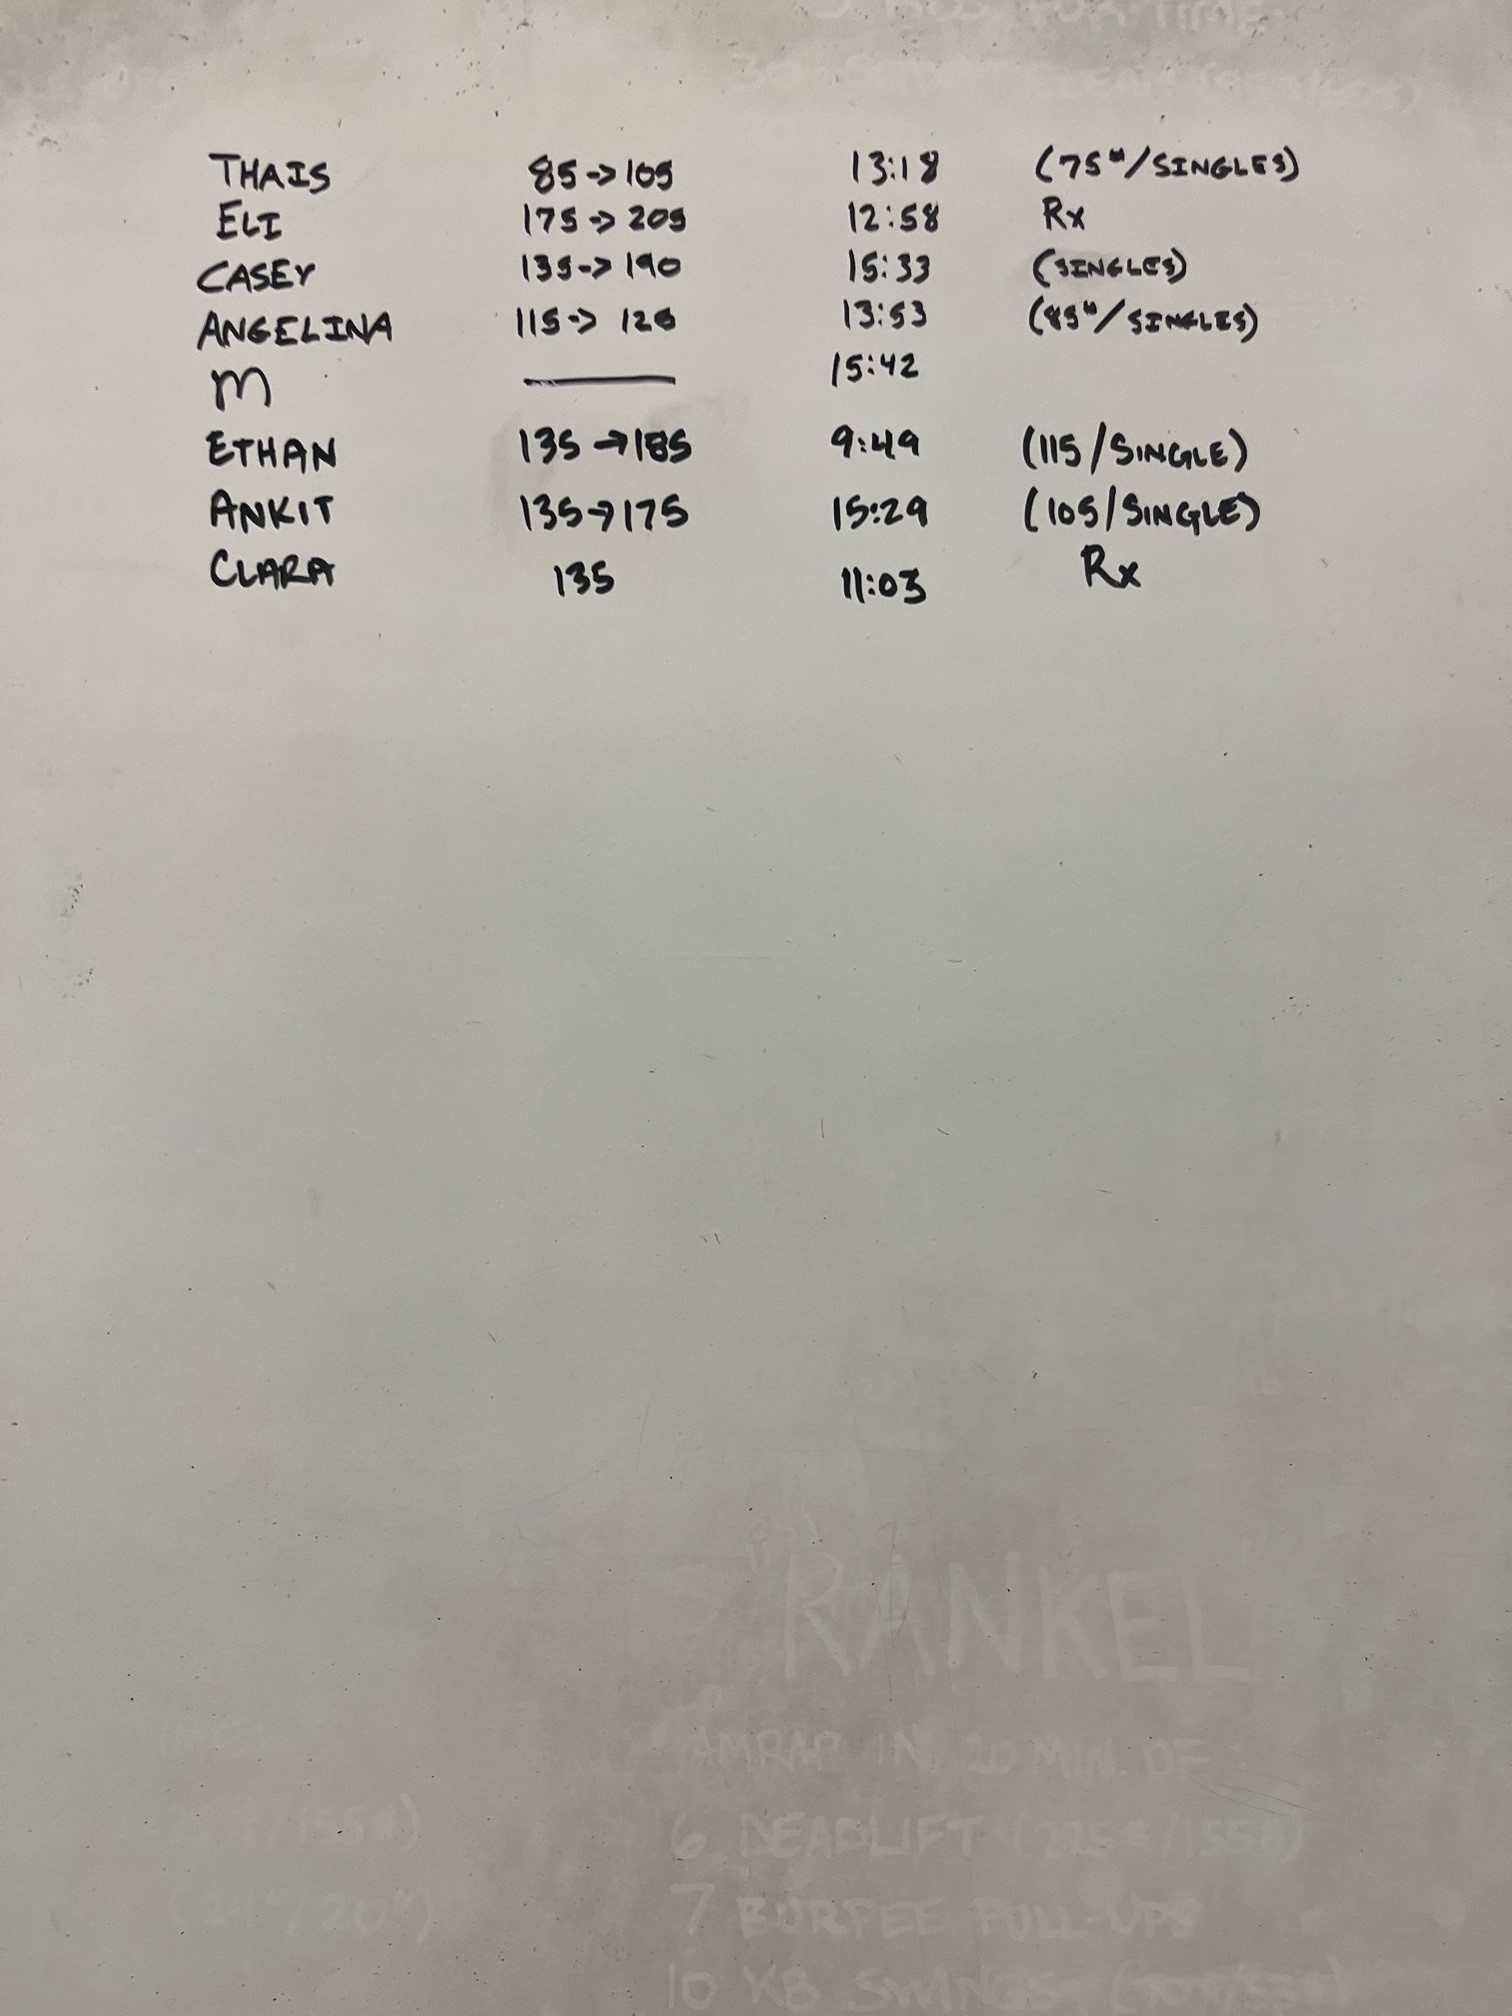 FOR TIME
THAIS 85->105 13:18 (75#/SINGLES)
ELI 175->205 12:58 Rx
CASEY 135->190 15:33 (SINGLES)
ANGELINA 115-> 125 13:53 (85#/SINGLES)
M — 15:42
ETHAN 135->185 9:49 (115/SINGLE)
ANKIT 135->175 15:29 (105/SINGLE)
CLARA 135 11:03 Rx
"RANKEL"
AMRAP IN 20 MIN. OF:
6 DEADLIFT (225#/155#)
(24"/20") 7 BURPEE PULL-UPS
10 KB SWINGS